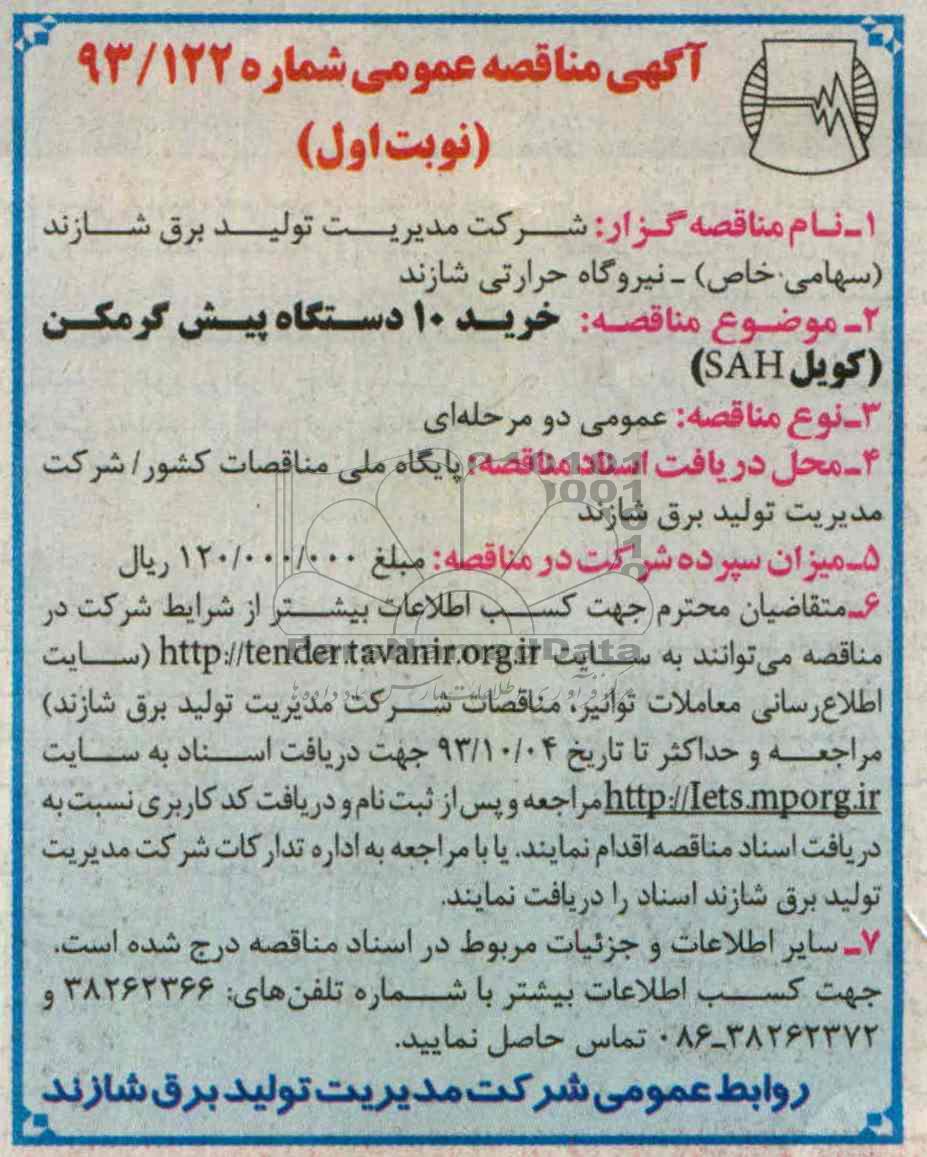 آگهی مناقصه عمومی شماره ۹۳/۱۲۲
(نوبت اول)
۱ـ نام مناقصه گزار: شرکت مدیریت تولید برق شازند
(سهامی خاص) ـ نیروگاه حرارتی شازند
۲ـ موضوع مناقصه: خرید ۱۰ دستگاه پیش گرمکن
(کویل SAH)
۳ـ نوع مناقصه: عمومی دو مرحله‌ای
۴ـ محل دریافت اسناد مناقصه: پایگاه ملی مناقصات کشور/ شرکت
مدیریت تولید برق شازند
۵ـ میزان سپرده شرکت در مناقصه: مبلغ ۱۲۰/۰۰۰/۰۰۰ ریال
۶ـ متقاضیان محترم جهت کسب اطلاعات بیشتر از شرایط شرکت در
مناقصه می‌توانند به سایت http://tender.tavanir.org.ir (سایت
اطلاع‌رسانی معاملات توانیر، مناقصات شرکت مدیریت تولید برق شازند)
مراجعه و حداکثر تا تاریخ ۹۳/۱۰/۰۴ جهت دریافت اسناد به سایت
http://Iets.mporg.ir مراجعه و پس از ثبت نام و دریافت کد کاربری نسبت به
دریافت اسناد مناقصه اقدام نمایند. یا با مراجعه به اداره تدارکات شرکت مدیریت
تولید برق شازند اسناد را دریافت نمایند.
۷ـ سایر اطلاعات و جزئیات مربوط در اسناد مناقصه درج شده است.
جهت کسب اطلاعات بیشتر با شماره تلفن‌های: ۳۸۲۶۲۳۶۶ و
۳۸۲۶۲۳۷۲ـ۰۸۶ تماس حاصل نمایید.
روابط عمومی شرکت مدیریت تولید برق شازند